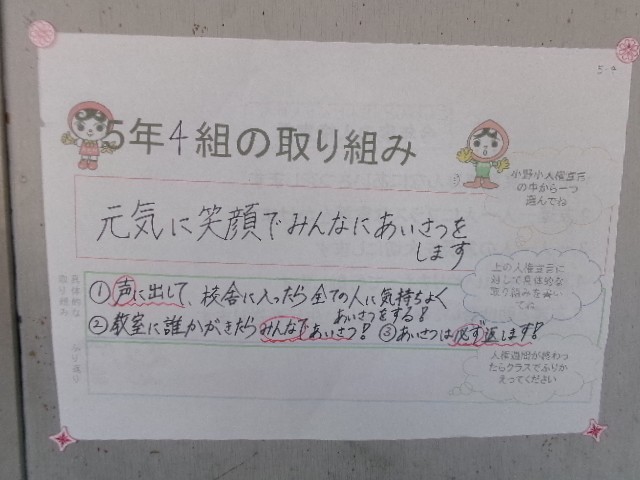 5-4
5年4組の取り組み
小野小人権宣言
の中から一つ
選んでね
元気に笑顔でみんなにあいさつを
します
上の人権宣言に
対して具体的な
取り組みを書い
てね
具体的な
取り組み
①声に出して、校舎に入ったら全ての人に気持ちよく
あいさつをする!
②教室に誰かがきたらみんなであいさつ! ③あいさつは必ず返します!
ふり返り
人権週間が終わっ
たらクラスでふりか
えってください